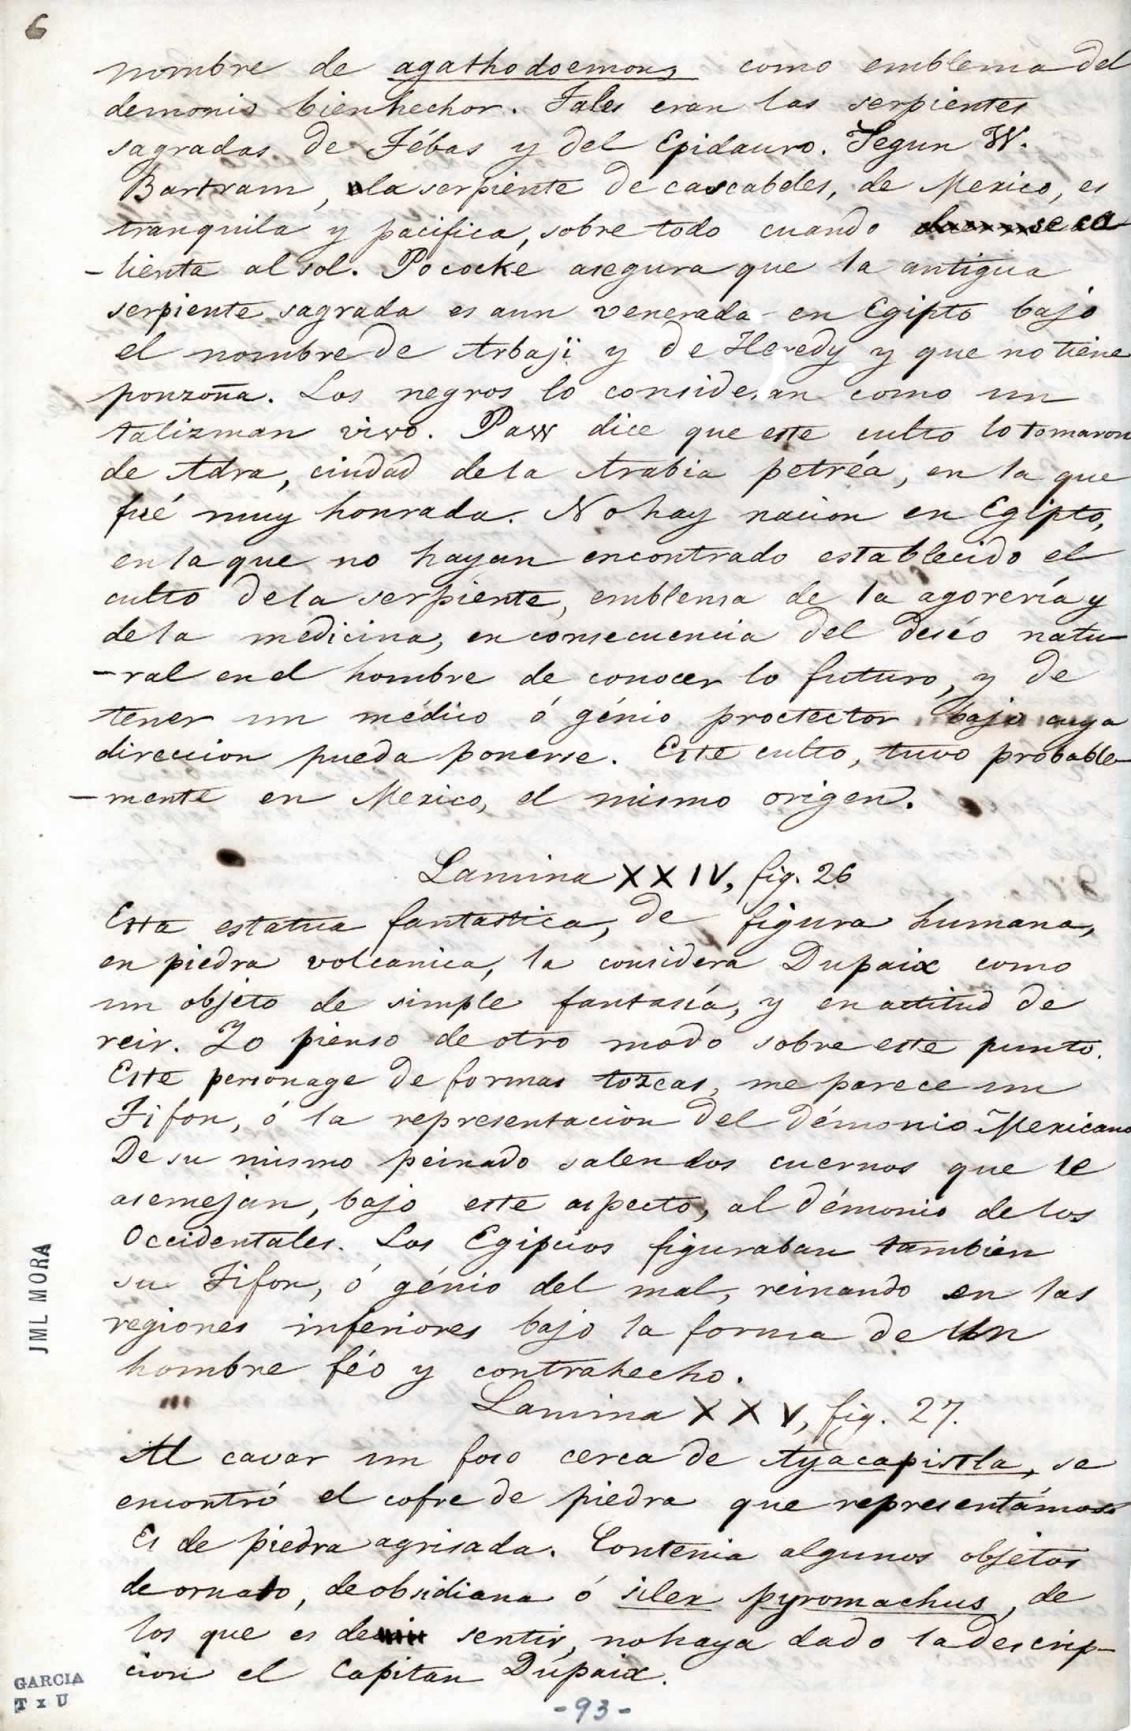 6
nombre de agathodoemons como emblema del
demonio bienhechor. Tales eran las serpientes
sagradas de Tébas y del Epidauro. Segun W.
Bartram, la serpiente de cascabeles, de Mexico, es
tranquila y pacifica, sobre todo cuando se ca
-lienta al sol. Pococke asegura que la antigua
serpiente sagrada es aun venerada en Egipto bajo
el nombre de Arbajï y de Heredy y que no tiene
ponzoña. Los negros lo consideran como un
talizman vivo. Paw dice que este culto lo tomaron
de Adra, ciudad de la Arabia petréa, en la que
fué muy honrada. No hay nacion en Egipto,
en la que no hayan encontrado establecido el
culto de la serpiente, emblema de la agorería y
de la medicina, en consecuencia del deséo natu-
-ral en el hombre de conocer lo futuro, y de
tener un médico ó génio proctector bajo cuya
direccion pueda ponerse. Este culto, tuvo probable-
-mente en Mexico, el mismo origen.
Lamina XXIV, fig. 26
Esta estatua fantastica, de figura humana,
en piedra volcanica, la considera Dupaix como
un objeto de simple fantasía, y en actitud de
reir. Yo pienso de otro modo sobre este punto.
Este personage de formas tozcas, me parece un
Tifon, ó la representacion del démonio Mexicano
De su mismo peinado salen dos cuernos que le
asemejan, bajo este aspecto, al démonio de los
Occidentales. Los Egipcios figuraban tambien
su Tifon, ó génio del mal, reinando en las
regiones inferiores bajo la forma de un
hombre féo y contrahecho.
Lamina XXV, fig. 27.
Al cavar un foso cerca de Ayacapistla, se
encontró el cofre de piedra que representámos
Es de piedra agrisada. Contenia algunos objetos
de ornato, de obsidiana ó silex pyromachus, de
los que es de sentir, no haya dado la descrip-
cion el Capitan Dupaix.
-93-
JML MORA
GARCIA
T x U